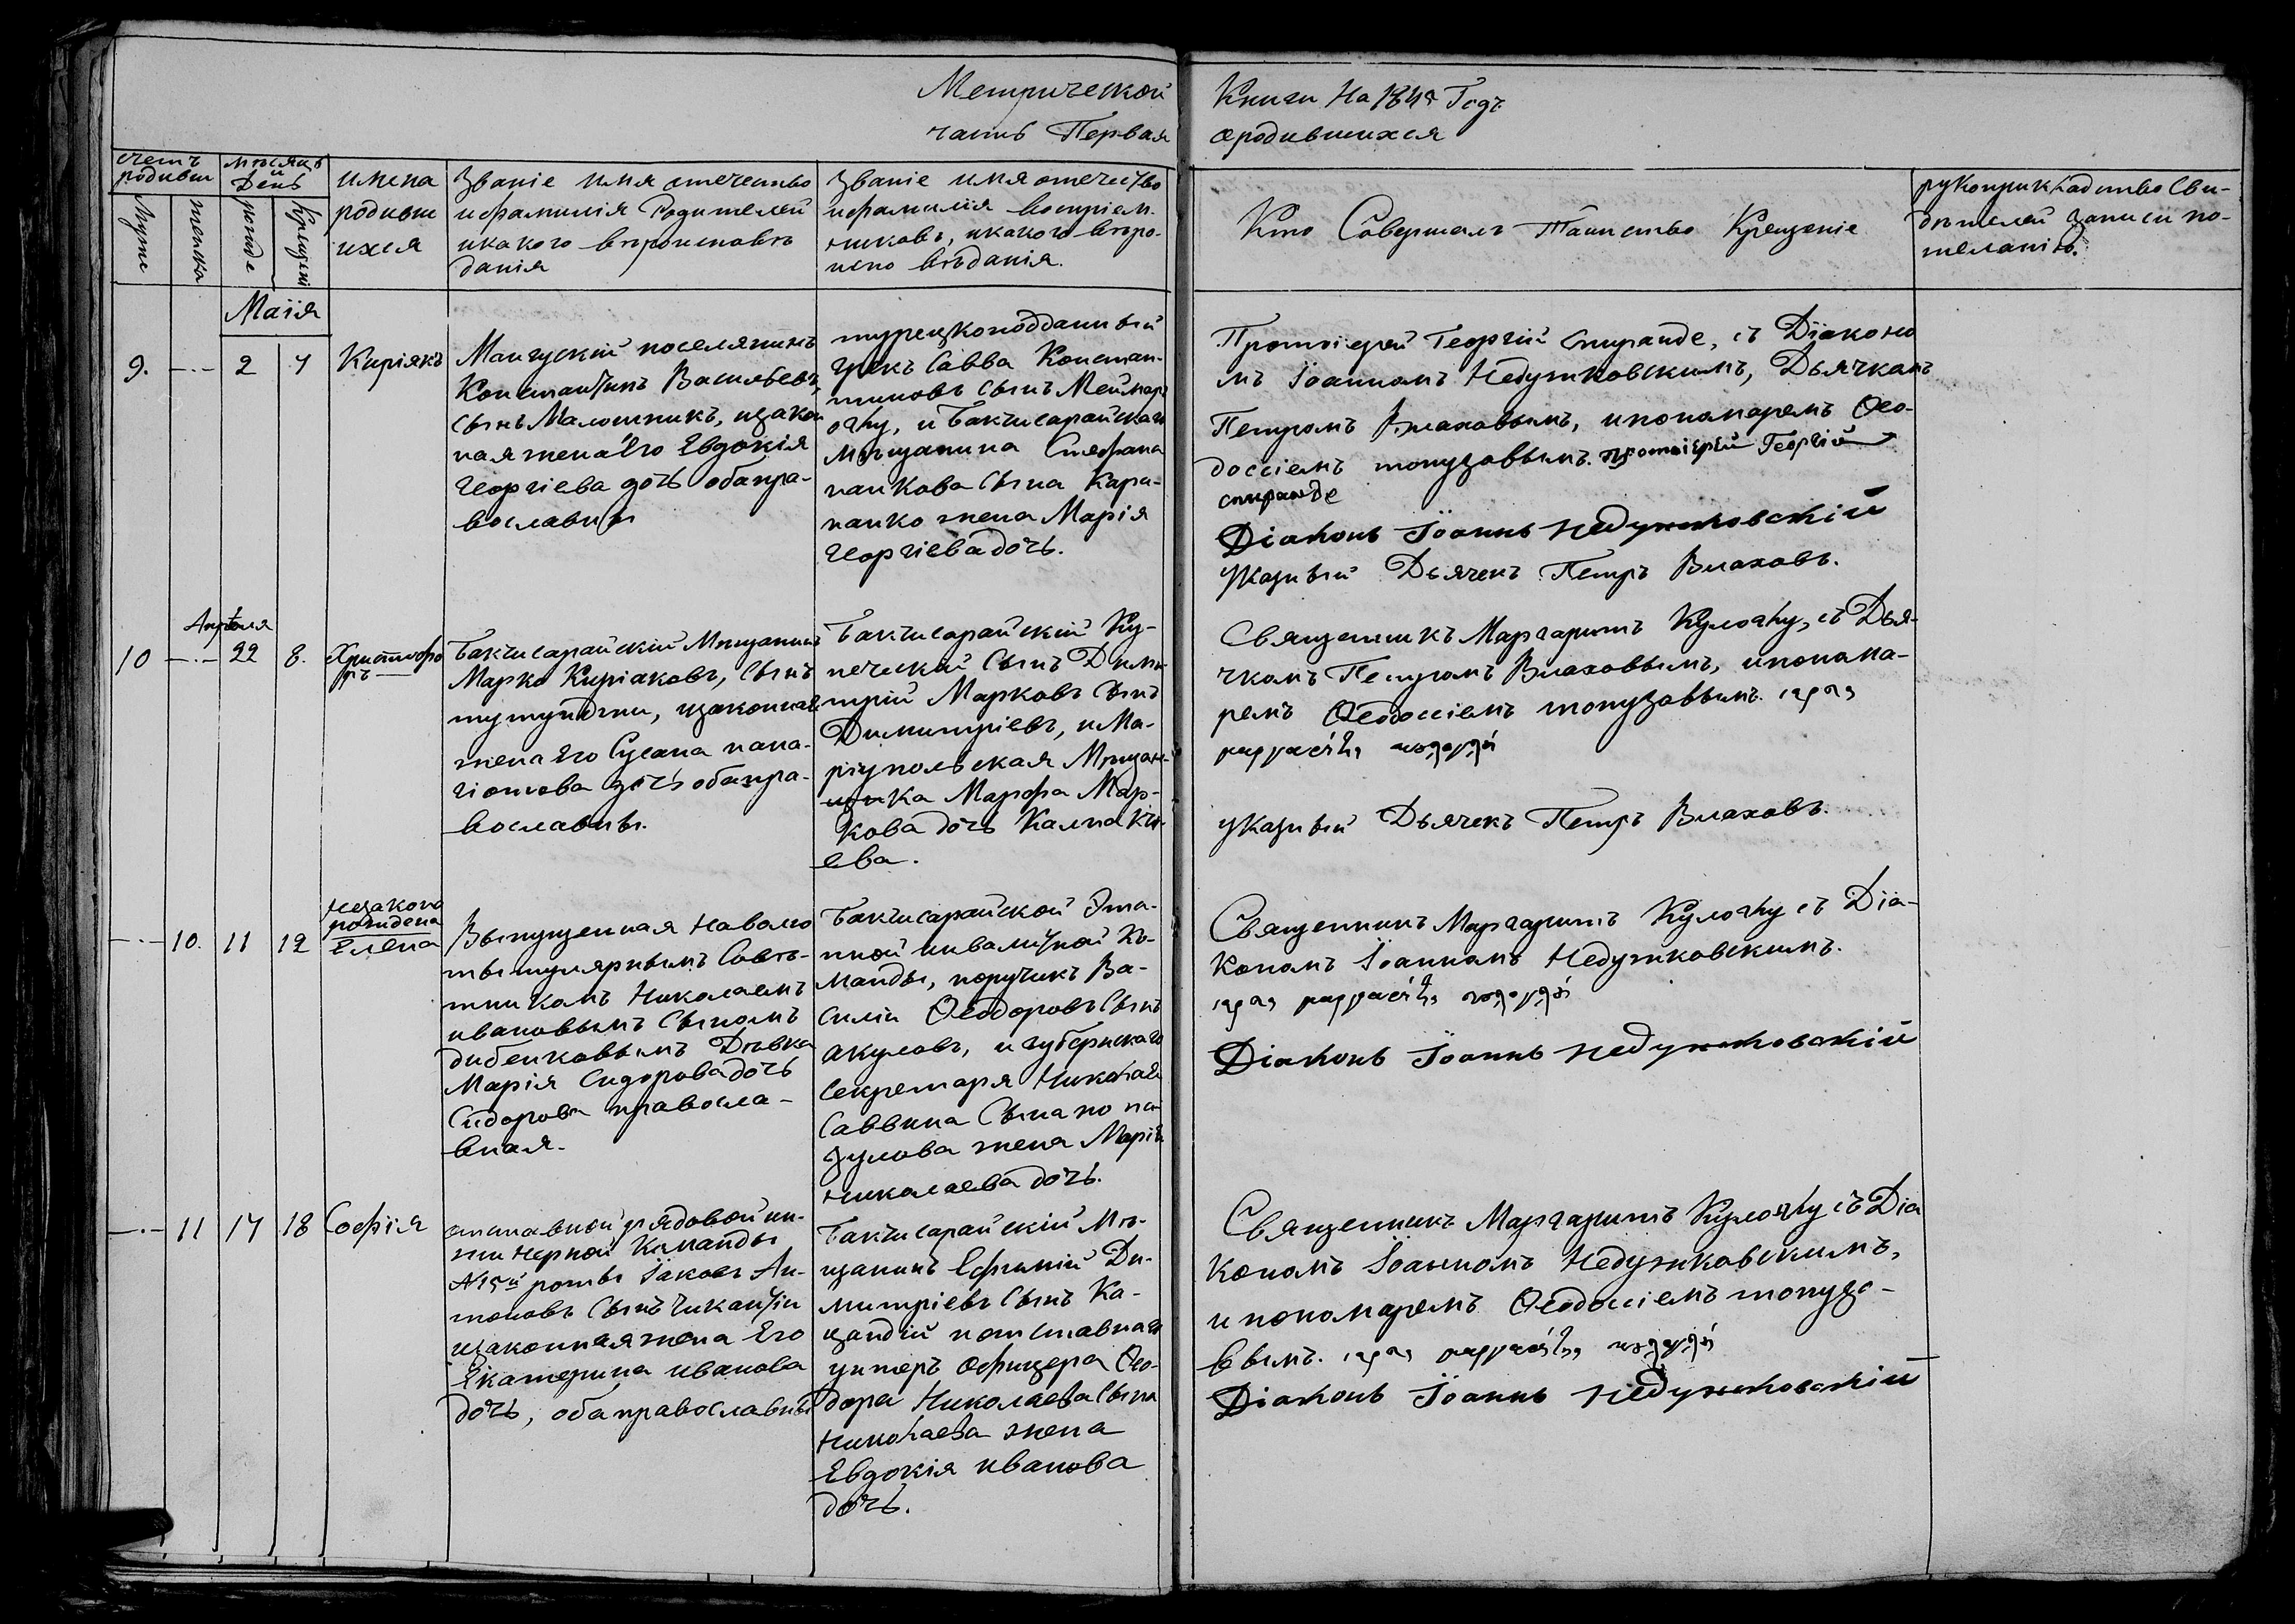 Метрической
часть Первая
Книги На 184 Годъ
о родившихся
счетъ родивш
мѣсяцъ и День
имена родивш ихся
Званіе имя отечество
и фамилія Родителей
и какого вѣроисповѣ
данія
Званіе имя отечество
и фамилія восприем-
никовъ, и какого вѣро-
испо вѣданія.
Кто Совершалъ Таинство Крещеніе
рукоприкладство Сви-
дѣтелей записи по-
желанію.
Мужс
женска
рожде
Крещені
Маія
9.
—·—
2
4
Киріякъ
Мангускій поселянинъ
Константинъ Васильевъ
сынъ Малошникъ, изакон
ная жена его Евдокія
Георгіева дочь оба пра-
вославны
турецкоподданный
грекъ Савва Констан-
тиновъ сынъ Меймар
оглу, и Бакчисарайскаго
Мѣщанина Стефана
панкова сына Кара-
панко жена Марія
Георгіева дочь.
Протоіерей Георгій Спиранде, съ Діаконо
мъ Іоанномъ Недужковскимъ, Дьячкомъ
Петромъ Влаховымъ, и пономаремъ Ѳео-
досіемъ топузовымъ. протоіерей Георгій
спиранде
Діаконъ Іоаннъ Недужковскій
Указный Дьячекъ Петръ Влаховъ.
Апрѣля
10
—·—
22
8.
Христофо
ръ
Бакчисарайскій Мѣщанинъ
Марко Киріаковъ, сынъ
тутунджи, изаконная
жена его Сусана пана-
гіотова дочь оба пра-
вославны.
Бакчисарайскій Ку-
печескій сынъ Дими
трій Марковъ сынъ
Димитріевъ, и Ма-
ріупольская Мѣщан-
ка Марфа Мар-
кова дочь Калпакчі
ева.
Священникъ Маргаритъ Кулоглу, съ Дья-
чкомъ Петромъ Влаховымъ, и понома-
ремъ Ѳеодосіемъ топузовымъ.
указный Дьячекъ Петръ Влаховъ.
—·—
10.
11
12
незакона
рождена
Елена
Выпущенная На волю
титулярнымъ Совѣ-
тникомъ Николаемъ
ивановымъ сыномъ
дибенковымъ Дѣвка
Марія Сидорова дочь
Сидорова правосла-
вная.
Бакчисарайской Эта-
пной инвалидной Ко-
манды, поручикъ Ва-
силій Ѳеодоровъ сынъ
акуловъ, и губернскаго
секретаря Николая
Саввина сына
жена Марія
Николаева дочь.
Священникъ Маргаритъ Кулоглу съ Діа-
кономъ Іоанномъ Недужковскимъ.
Діаконъ Іоаннъ Недужковскій
—·—
11
17
18
Софія
отставной рядовой ин-
жинерной Команды
№15й роты Іаковъ Ан-
тоновъ сынъ
изаконная жена Его
Екатерина иванова
дочь, оба православны
Бакчисарайскій Мѣ-
щанинъ Ефимій Ди-
митріевъ сынъ Ка-
и отставнаго
унтеръ офицера Ѳео-
дора Николаева сына
Николаева жена
Евдокія иванова
дочь.
Священникъ Маргаритъ Кулоглу съ Діа
кономъ Іоанномъ Недужковскимъ,
и пономаремъ Ѳеодосіемъ топузо-
вымъ.
Діаконъ Іоаннъ Недужковскій